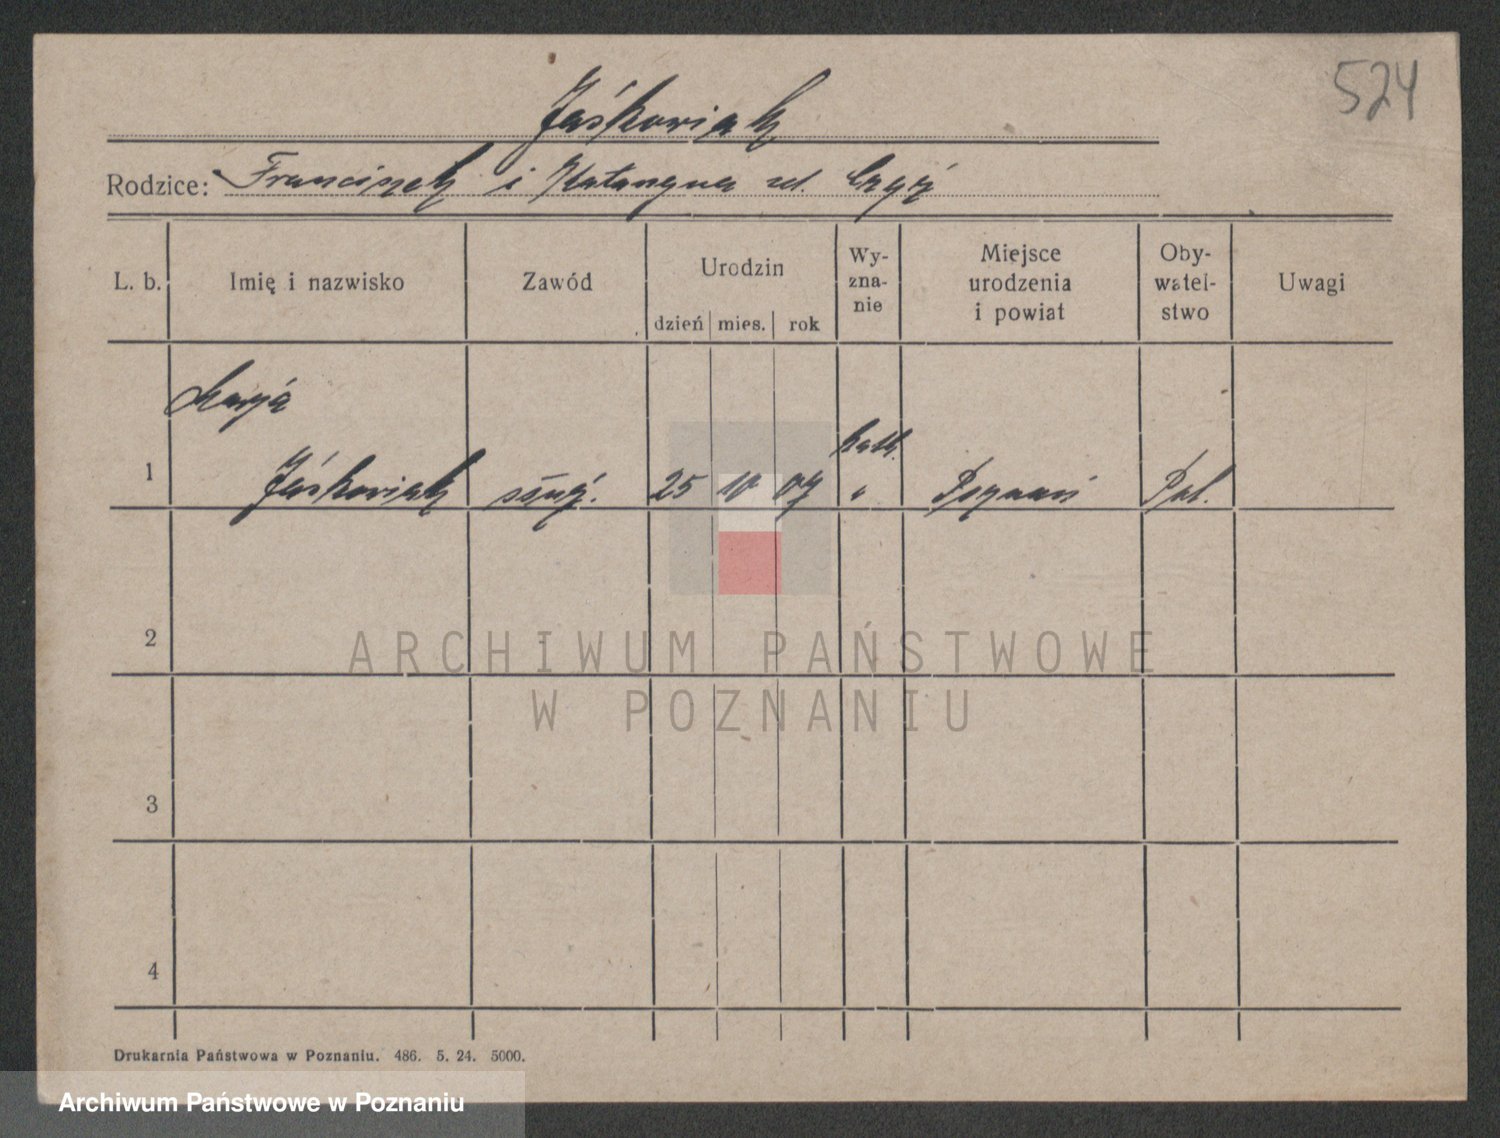 524
Jaśkowiak
Rodzice: Franciszek i Katarzyna zd.
L. b. Imię i nazwisko Zawód Urodzin dzień mies. rok Wy-zna-nie Miejsce urodzenia i powiat Oby-watel-stwo Uwagi
Marja
kath.
1 Jaśkowiak służ. 25 10 07 " Poznań Pol.
2
ARCHIWUM PAŃSTWOWE
W POZNANIU
3
4
Drukarnia Państwowa w Poznaniu. 486. 5. 24. 5000.
Archiwum Państwowe w Poznaniu